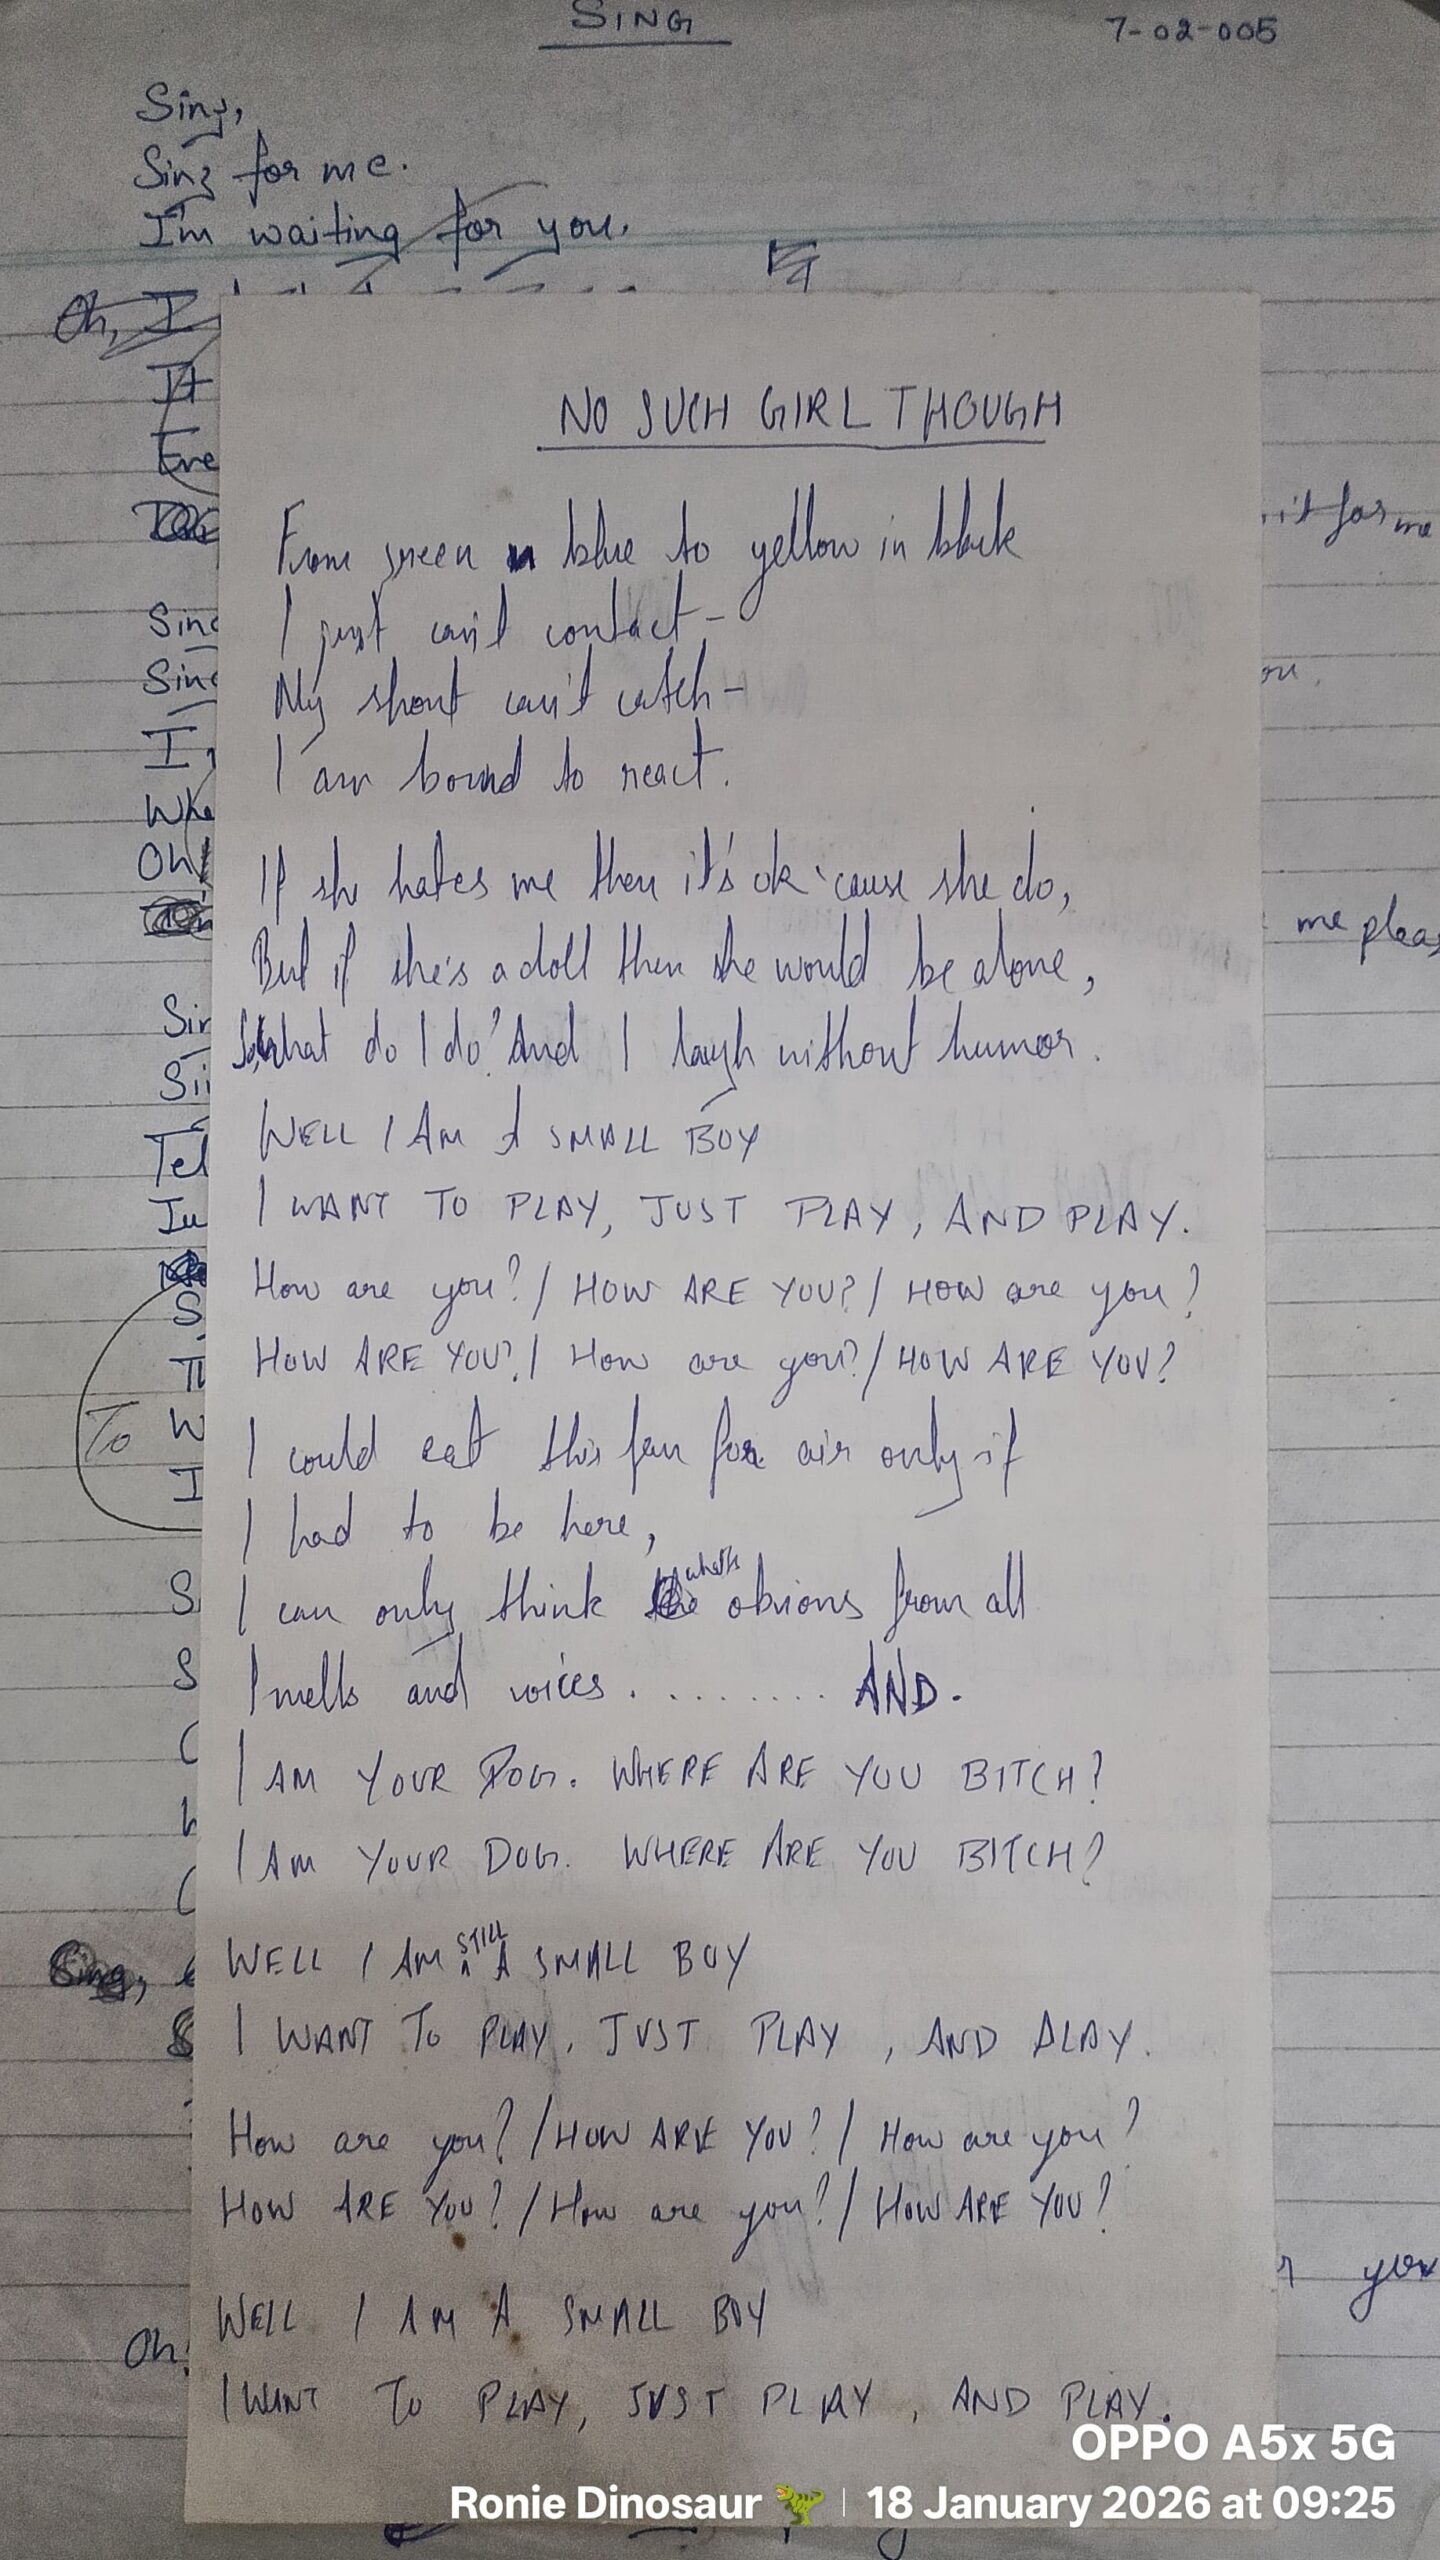 SING
7-02-005
Sing,
Sing for me.
I'm waiting for you.
Oh, I
It
Eve
it for me
Sing
Sing
you.
I,
Whe
Oh!
me pleas
Sin
Sin
Tel
Ju
S
Th
To W
I
S
S
Sing,
Oh!
you
NO SUCH GIRL THOUGH
From green n blue to yellow in black
I just can't contact -
My shout can't catch -
I am bound to react.
If she hates me then it's ok 'cause she do,
But if she's a doll then she would be alone,
So, what do I do? And I laugh without humor.
WELL I AM A SMALL BOY
I WANT TO PLAY, JUST PLAY, AND PLAY.
How are you? / HOW ARE YOU? / How are you?
HOW ARE YOU? / How are you? / HOW ARE YOU?
I could eat this fan for air only if
I had to be here,
I can only think what's obvious from all
Smells and voices . ........ AND.
I AM YOUR DOG. WHERE ARE YOU BITCH?
I AM YOUR DOG. WHERE ARE YOU BITCH?
WELL I AM STILL A SMALL BOY
I WANT TO PLAY, JUST PLAY, AND PLAY.
How are you? / HOW ARE YOU? / How are you?
HOW ARE YOU? / How are you? / HOW ARE YOU?
WELL I AM A SMALL BOY
I WANT TO PLAY, JUST PLAY, AND PLAY.
OPPO A5x 5G
Ronie Dinosaur 🦖 | 18 January 2026 at 09:25